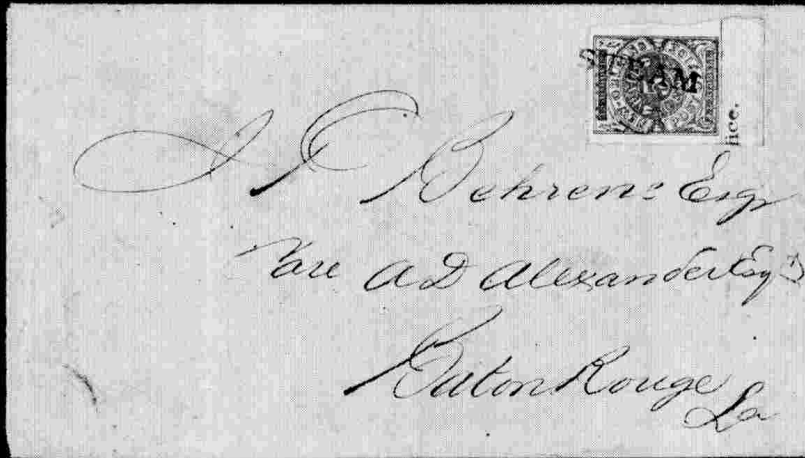 STEAM
fice.
J F Behrens Esq
Care A D Alexander Esq
Baton Rouge
La